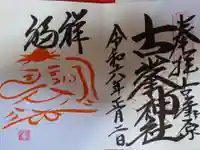 奉拝
古峯原
古峯神社
令和六年正月二日
祥
福